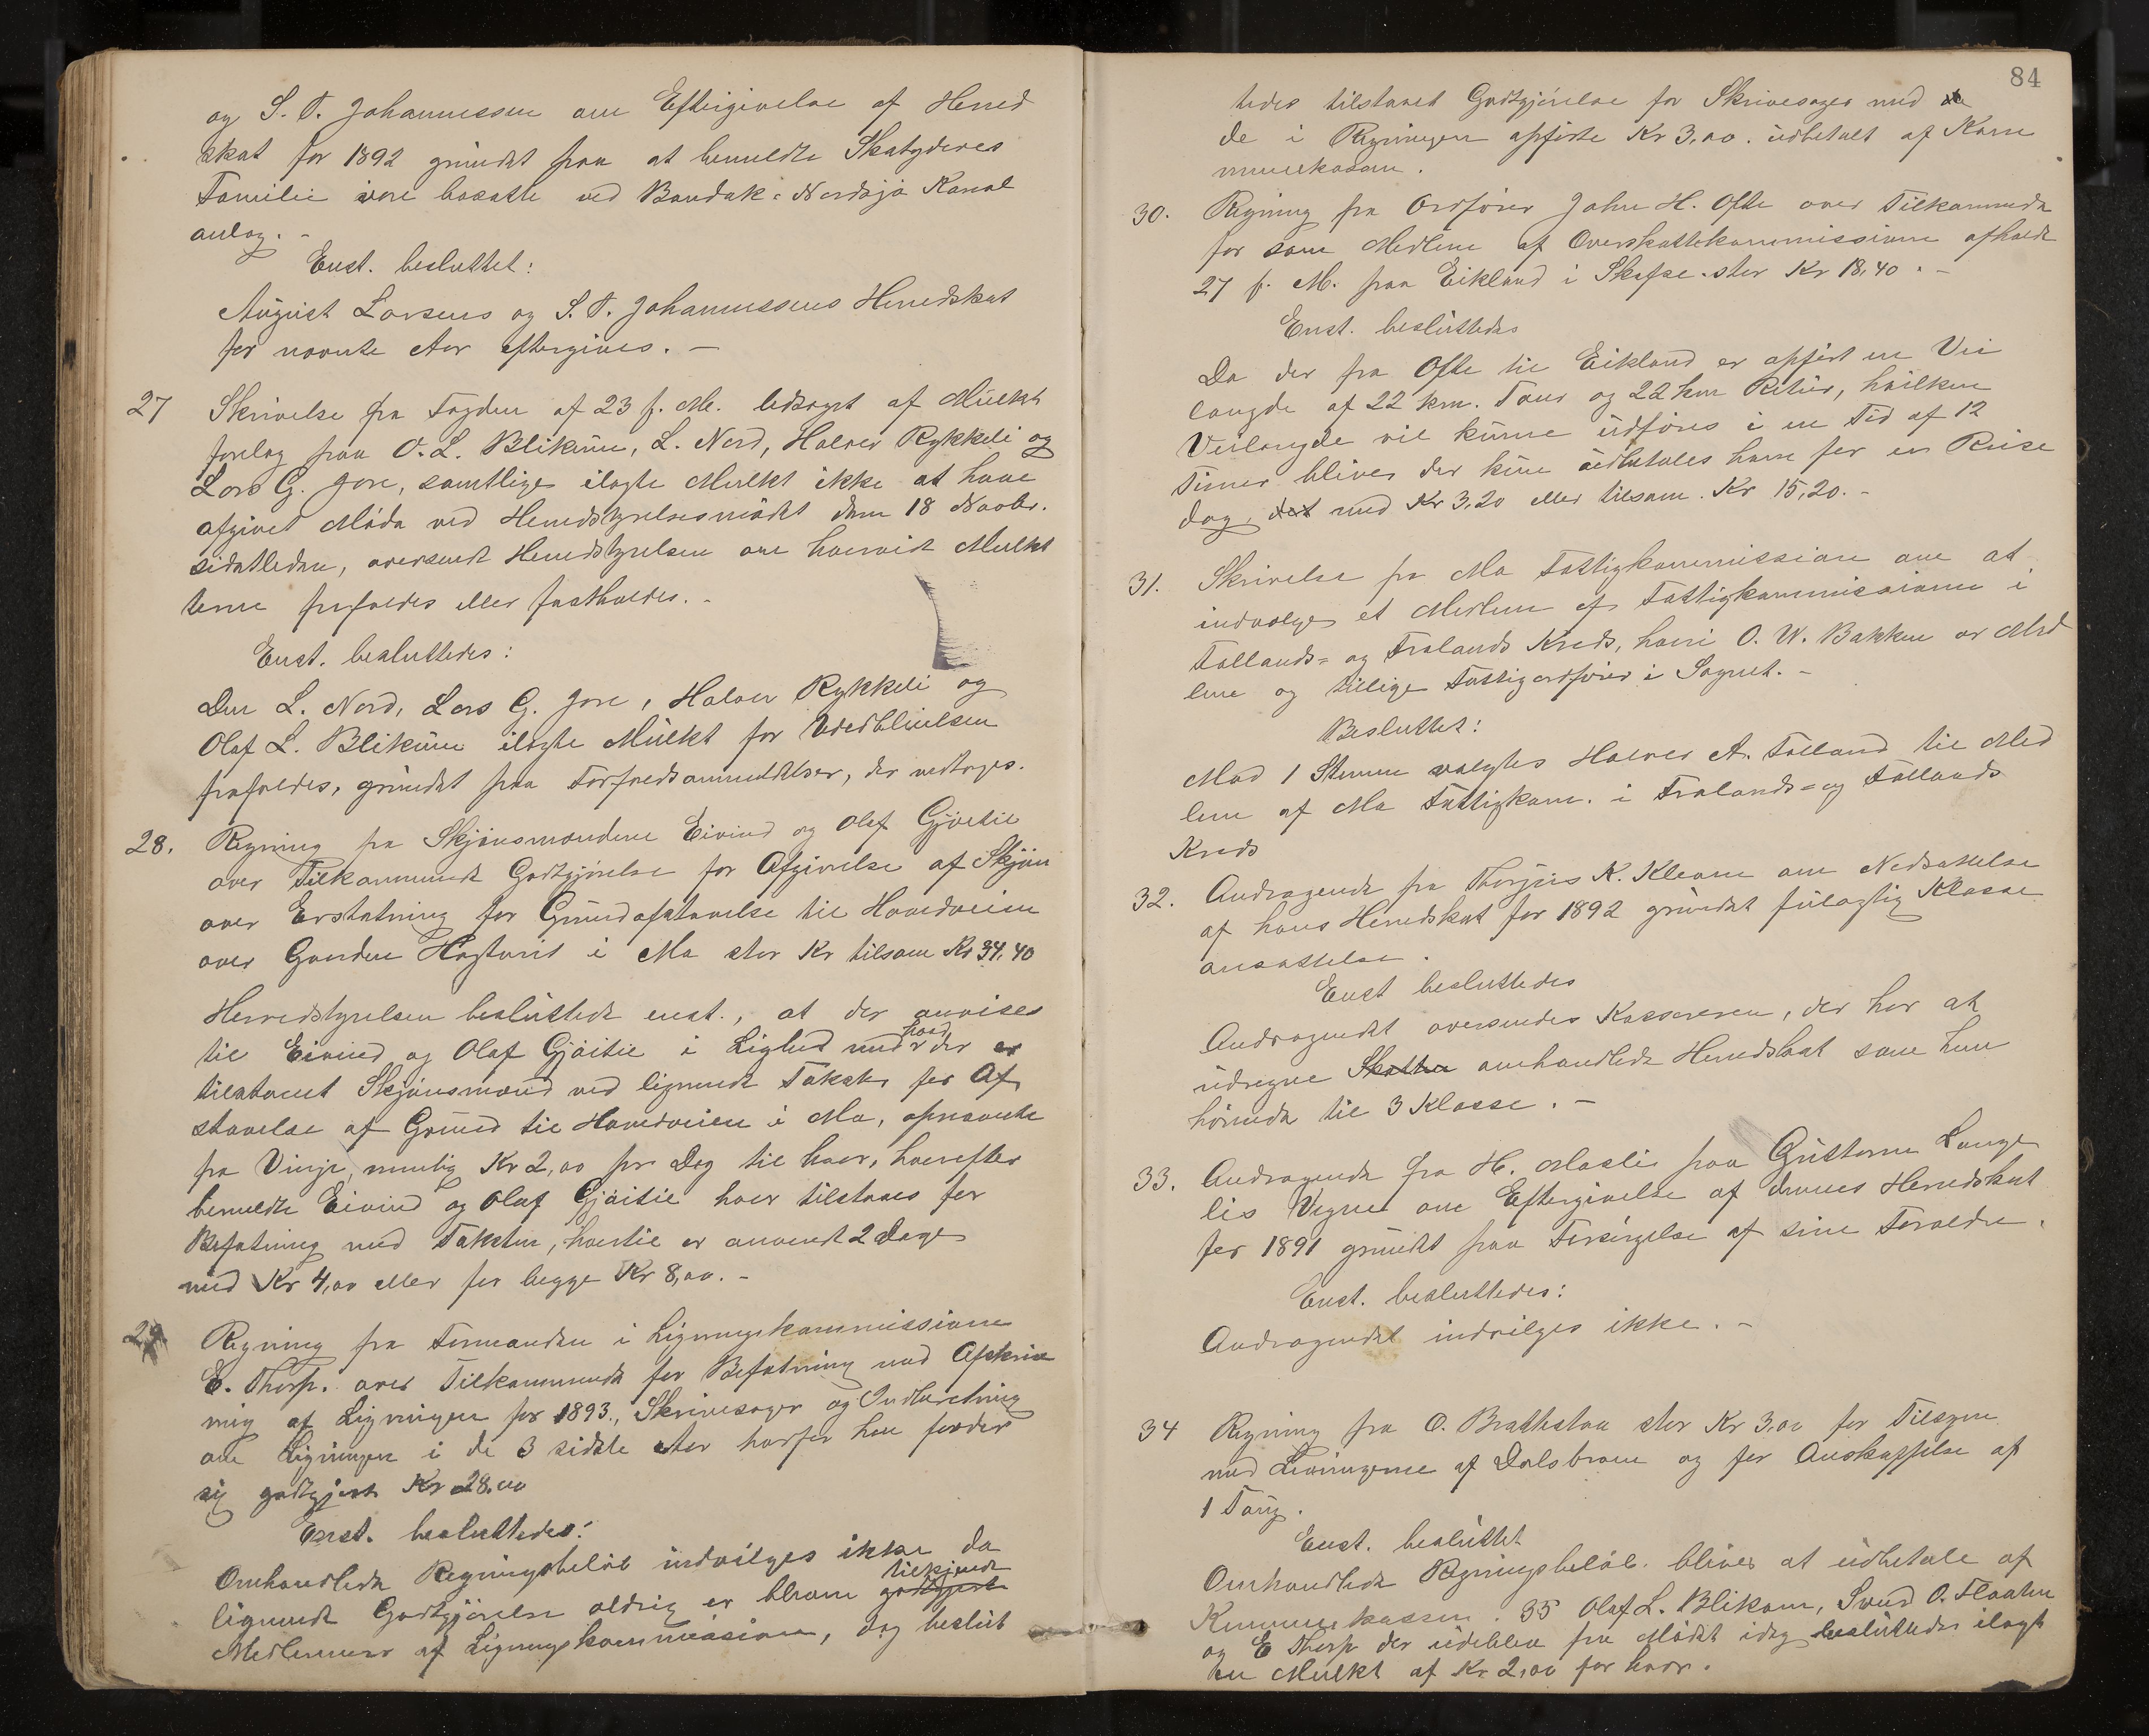 og S. T. Johannessen om Eftergivelse af Hered
skat for 1892 grundet paa at bemeldte Skatyderes
Familie vare bosatte ved Bandak-Nordsjø Kanal
anlæg. -
Enst. besluttet:
August Larsens og S. T. Johannessens Heredskat
for nævnte Aar eftergives. -
27 Skrivelse fra Fogden af 23 f. M. ledsaget af Mulkt
forelæg paa O. L. Blikom, L. Nord, Halvor Rykkeli og
Lars G. Jore, samtlige ilagte Mulkt ikke at have
afgivet Møde ved Heredstyrelsesmødet den 18 Novbr.
sidstleden, oversendt Heredstyrelsen om hvorvidt Mulkt
terne frafaldes eller fastholdes. -
Enst. besluttedes:
Den L. Nord, Lars G. Jore, Halvor Rykkeli og
Olaf L. Blikom ilagte Mulkt for Udeblivelsen
frafaldes, grundet paa Forfaldsanmeldelser, der vedtages.
28. Regning fra Skjønsmændene Eivind og Olaf Gjøitil
over Tilkommende Godtgjørelse for Afgivelse af Skjøn
over Erstatning for Grundafstaaelse til Hovedveien
over Gaarden Høgtveit i Mo stor Kr tilsam Kr 34,40
Herredstyrelsen besluttede enst., at der anvises
til Eivind og Olaf Gjøitil i Lighed med hvad der er
tilstaaet Skjønsmænd ved lignende Takster for Af
staaelse af Grund til Hovedveien i Mo, opnævnte
fra Vinje, nemlig Kr 2,00 pr Dag til hver, hvorefter
bemeldte Eivind og Olaf Gjøitil hver tilstaaes for
Befatning med Taksten, hvortil er anvendt 2 Dage
med Kr 4,00 eller for begge Kr 8,00. -
29 Regning fra Formanden i Ligningskommissionen
E. Thorp. over Tilkommende for Befatning med Afskriv
ning af Ligningen for 1893, Skrivesager og Indberetning
om Ligningen i de 3 sidste Aar hvorfor han fordrer
sig godtgjort Kr 28.00
Enst. besluttedes:
Omhandlede Regningsbeløb indvilges ikke da
lignende Godtgjørelse aldrig er bleven godtgjort tilkjendt
Medlemmer af Ligningskommissionen, dog beslut
84
tedes tilstaaet Godtgjørelse for Skrivesager med
de i Regningen opførte Kr 3,00. udbetalt af Kom
munekassen.
30. Regning fra Ordfører John H. Ofte over Tilkommende
for som Medlem af Overskattekommissionen afholdt
27 f. M. paa Eikland i Skafse stor Kr 18,40. -
Enst. besluttedes
Da der fra Ofte til Eikland er opført en Vei
længde af 22 km. Tour og 22 km Retur, hvilken
Veilængde vil kunne udføres i en Tid af 12
Timer bliver der kun udbetales ham for en Reise
dag, det med Kr 3,20 eller tilsam. Kr 15,20. -
31. Skrivelse fra Mo Fattigkommission om at
indvælge et Medlem af Fattigkommissionen i
Føllands- og Frolands Kreds, hvori O. W. Bakken er Med
lem og tillige Fattigordfører i Sognet. -
Besluttet:
Mod 1 Stemme valgtes Halvor A. Følland til Med
lem af Mo Fattigkom. i Frolands- og Føllands
Kreds
32. Andragende fra Thorjus K. Kleven om Nedsættelse
af hans Heredskat for 1892 grundet feilagtig Klasse
ansættelse.
Enst besluttedes
Andragendet oversendes Kassereren, der har at
udregne Skatten omhandlede Heredskat som hen
hørende til 3 Klasse. -
33. Andragende fra H. Moslie paa Guttorm Lange
lis Vegne om Eftergivelse af dennes Heredskat
for 1891 grundet paa Forsørgelse af sine Forældre.
Enst. besluttedes:
Andragendet indvilges ikke. -
34 Regning fra O. Brattestaa stor Kr 3,00 for Tilsyn
med Levningerne af Dalsbroen og for Anskaffelse af
1 Toug.
Enst. besluttet
Omhandlede Regningsbeløb. bliver at udbetale af
Kommunekassen. 35 Olaf L. Blikom, Svend O. Flaaten
og E Thorp der udeblev fra Mødet idag besluttedes ilagt
en Mulkt af Kr 2,00 for hver.